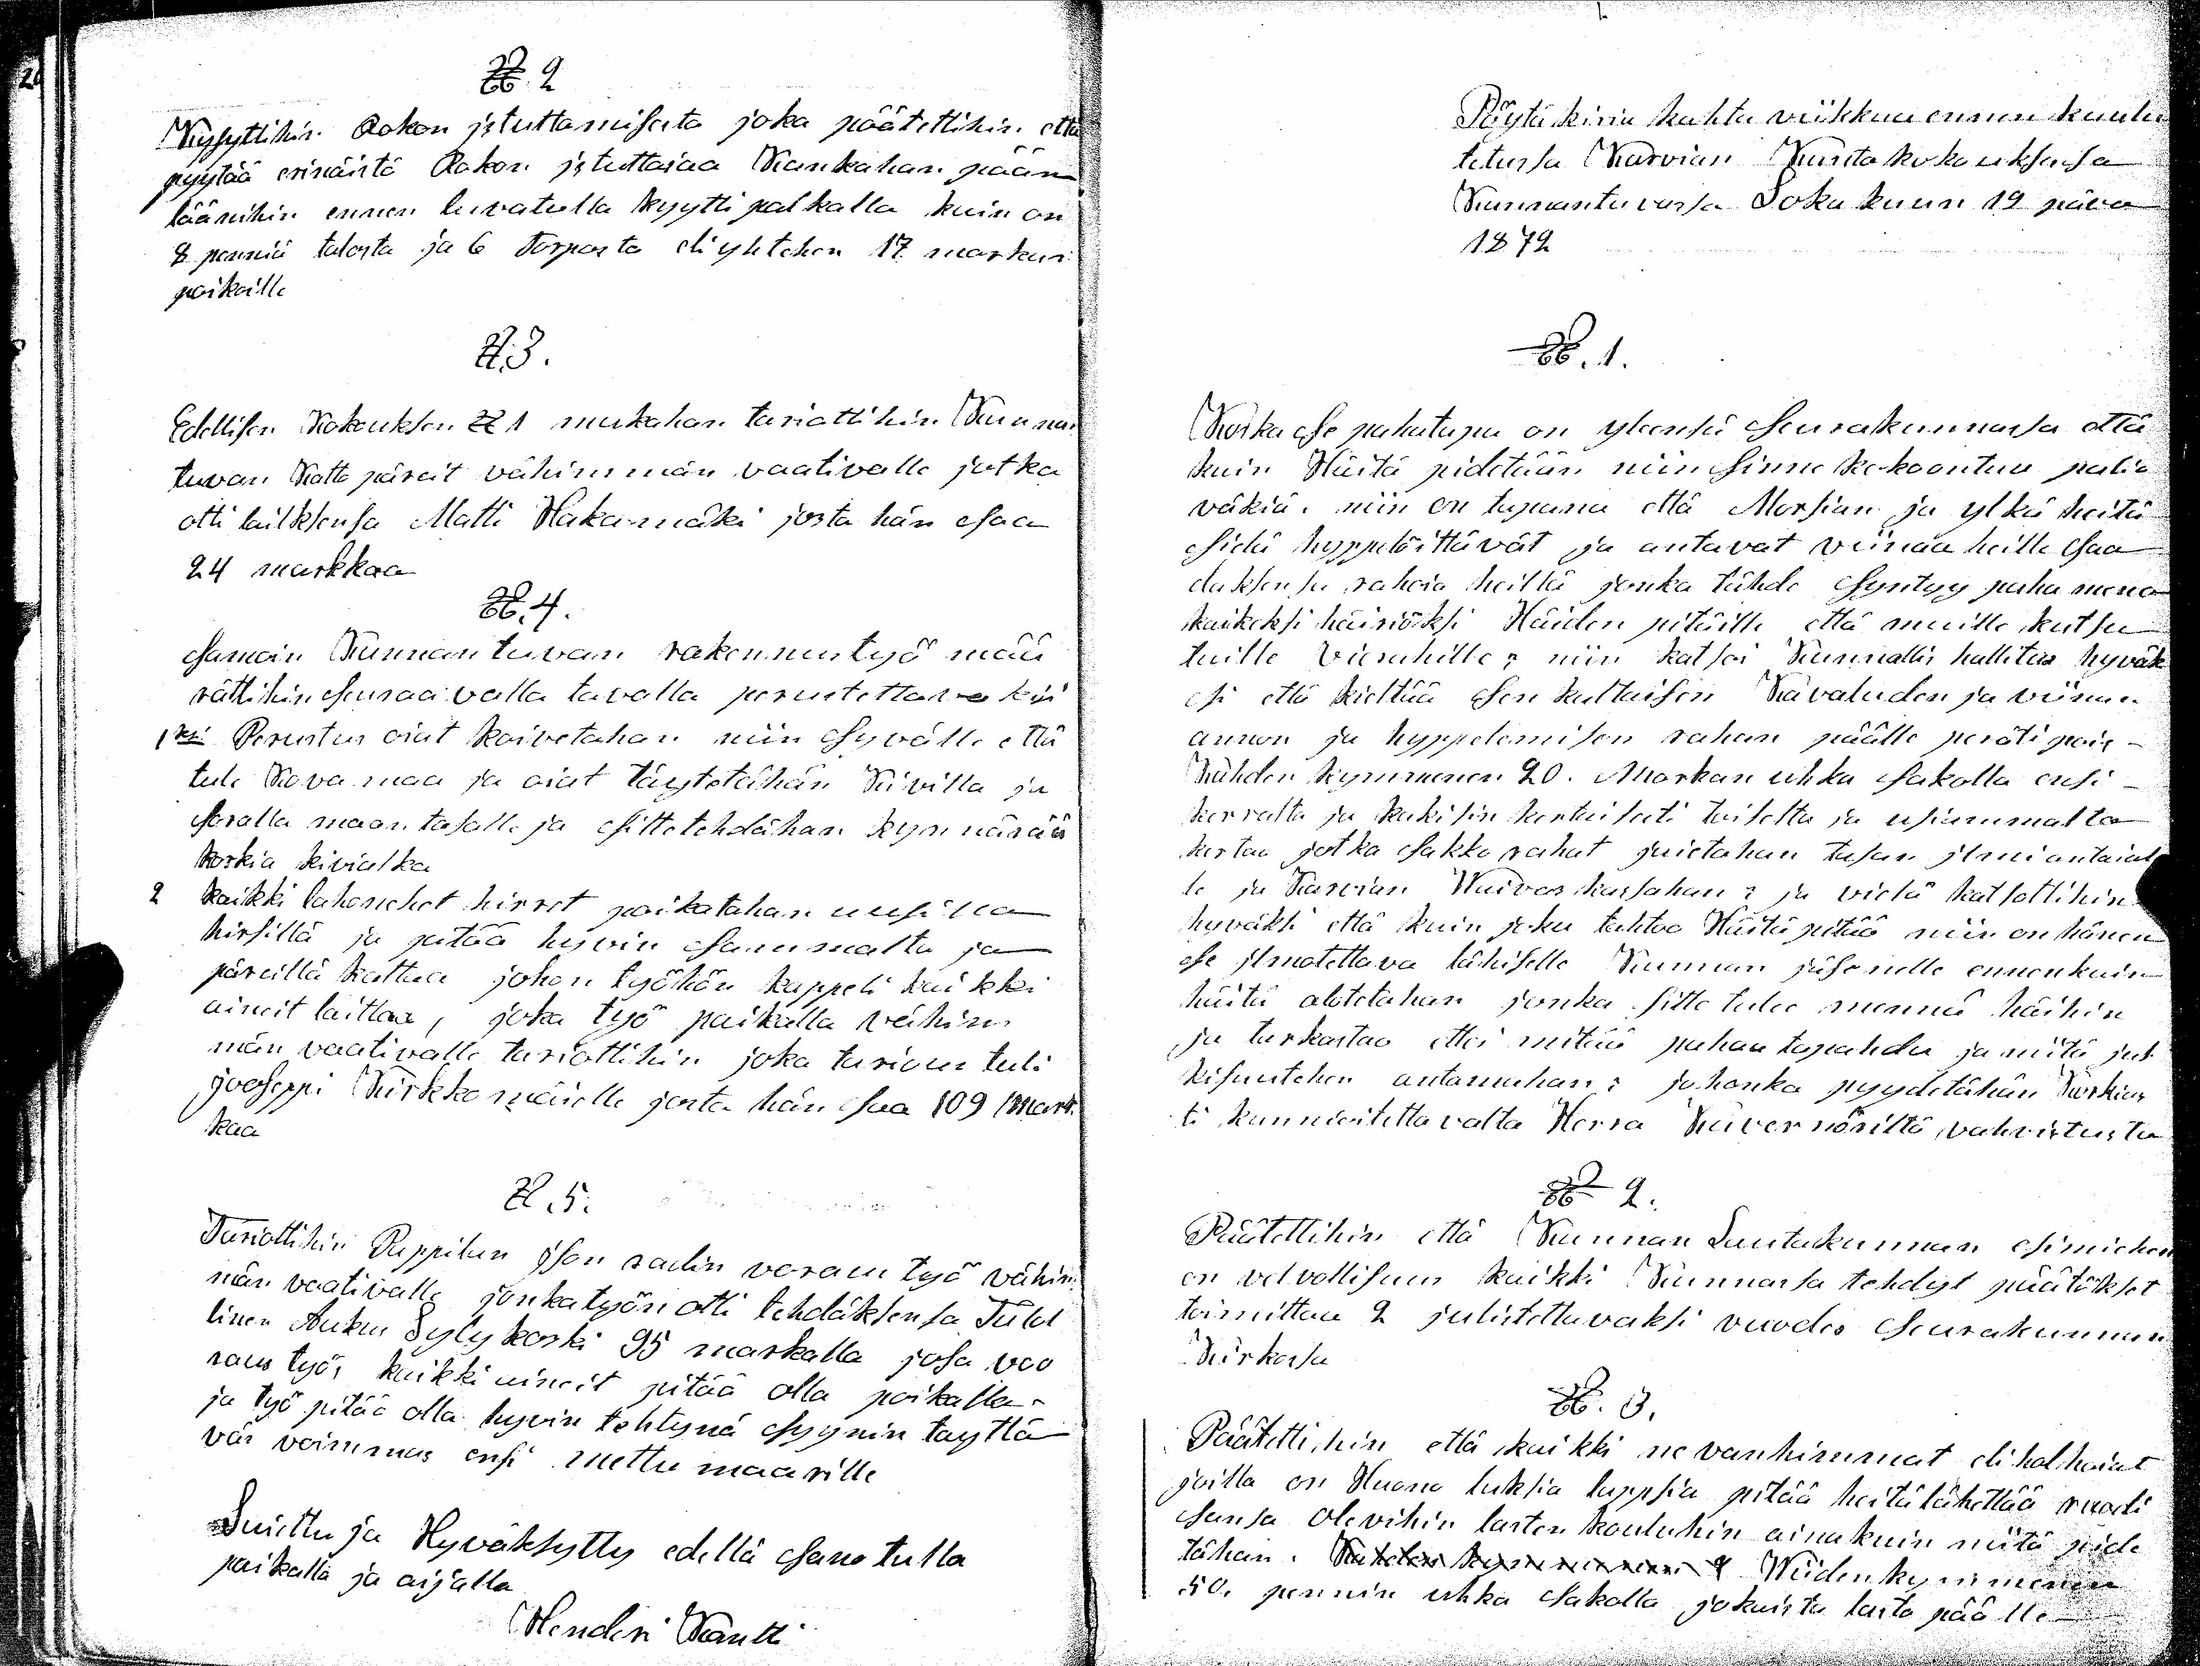 § 2
Kysyttihin Rokon istuttamisesta joka päätettihin että
pyytää erinäistä Rokon istuttajaa Kankahan pään
läänihin ennen luvatulla kyytti palkalla kuin on
8 penniä talosta ja 6 Torpasta eli yhtehen 17 markan
paikoille
§ 3.
Edellisen Kokouksen § 1 mukahan tariottihin Kunnan
tuvan Katto päreit vähimmän vaativalle jotka
otti laitksensa Matti Hakamäki josta hän saa
24 markkaa
§. 4.
Samoin Kunnantuvan rakennustyö mää
rättihin seuraavalla tavalla perustettava ksi
1ksi Perustus ojat kaivetahan niin syvälle että
tule Kova maa ja ojat täytetähän Kivilla ja
soralla maan tasalle ja sitte tehdähän kynnärää
korkia kivialka
2 kaikki lahonehet hirret paikatahan uusilla
hirsillä ja pitää hyvin sammalta ja
päreillä kattaa johon työhön kappeli kaikki
aineit laittaa, joka työ paikalla vähim
män vaativalle tariottihin joka tarious tuli
jooseppi Kirkkomäelle josta hän saa 109 mark
kaa
§. 5.
Tariottihin Pappilan ison sadin voraus työ vähim
män vaativalle jonka työn otti tehdäksensa Tilal
linen Aukus Sylykoski 95 markalla josa voo
raus työs kaikki aineit pitää olla paikalla
ja työ pitää olla hyvin tehtynä syynin täyttä
väs voimmas ensi mettumaarille
Luittu ja Hyväksytty edellä sanotulla
paikalla ja aijalla
Henderi Käntti
Pöytäkiria kahta viikkua ennen kuulu
tetussa Karvian Kunta kokouksessa
Kunnantuvassa Lokakuun 19 päivä
1872
§. 1.
Koska se pahatapa on yleensä seurakunnassa että
kuin Häitä pidetään niin sinne kokoontuu palio
väkiä. niin on tapana että Morsian ja ylkä heitä
siellä hyppelöittävät ja antavat viinaa heille saa
daksensa rahoia heiltä jonka tähde syntyy paha meno
kaikeksi häiriöksi Häiden pitäille että muille kutsu
tuille vierahille; niin katsoi Kunnallis hallitus hyväk
si että kieltää sen kaltaisen Tavaluden ja viinan
annon ja hyppelemisen rahan päälle peräti pois
Kahden kymmenen 20. Markan uhka sakolla ensi
kerralta ja kakisin kertaisesti toiselta ja usiammalta
kertaa jotka sakko rahat jaetahan tasan ilmiantaial
le ja Karvian Waivaskassahan; ja vielä katsottihin
hyväksi että kuin joku tahtoo Häitä pitää niin on hänen
se ilmotettava lähiselle Kunnan jäsenelle ennenkuin
häitä alotetahan jonka sitte tulee mennä häihin
ja tarkastaa ettei mitää pahaa tapahdu ja niitä jul
kisuutehen antamahan; johonka pyydetähän Korkias
ti kunnioitettavalta Herra Kuvernöriltä vahvistusta
§ 2.
Päätettihin että Kunnan Lautakunnan esimiehen
on velvollisuus kaikki Kunnassa tehdyt päätökset
toimittaa 2 julistettavaksi vuodes seurakunnan
Kirkossa
§. 3.
Päätettihin että kaikki ne vanhimmat eli holhoiat
joilla on Huono luksia lappsia pitää heitä lähettää ruodi
sansa olevihin lasten kouluhin aina kuin niitä pide
tähän. Kahden kymmenen Wiidenkymmenen
50. pennin uhka sakolla jokaista lasta päälle